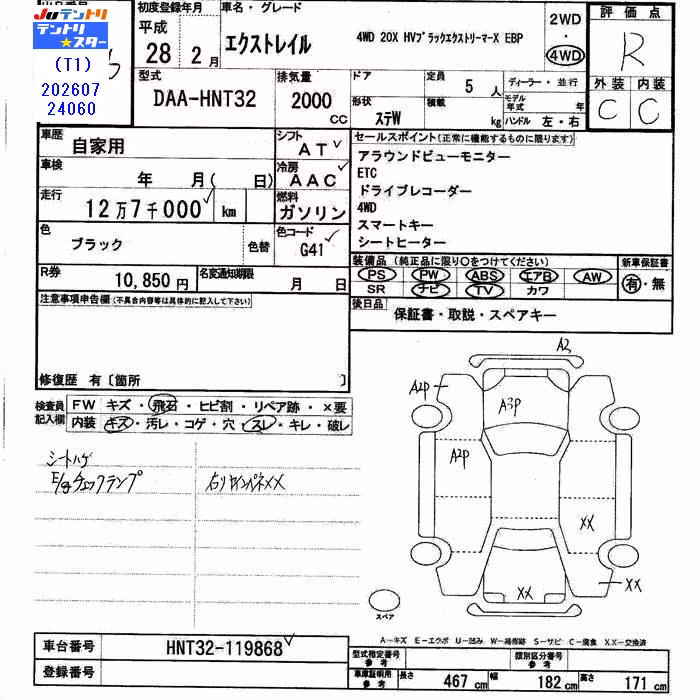 Juテントリ
テントリ
★スター
(T1)
202607
24060
初度登録年月
平成
28年2月
車名・グレード
エクストレイル 4WD 20X HVブラックエクストリーマーX EBP
2WD
・
4WD
評価点
R
外装 内装
C C
型式
DAA-HNT32
排気量
2000
CC
ドア
形状
ステW
定員
5人
積載
kg
ディーラー・並行
モデル年式 年
ハンドル 左・右
車歴
自家用
シフト
AT
車検
年 月( 日)
冷房
AAC
走行
12万7千000 km
燃料
ガソリン
色
ブラック
色替
色コード
G41
R券
10,850円
名変通知期限
月 日
セールスポイント(正常に機能するものに限ります)
アラウンドビューモニター
ETC
ドライブレコーダー
4WD
スマートキー
シートヒーター
装備品(純正品に限り○をつけてください)
PS PW ABS エアB AW
SR ナビ TV カワ
新車保証書
有・無
後日品
保証書・取説・スペアキー
注意事項申告欄(不具合内容等は具体的に記入して下さい)
修復歴 有〔箇所 〕
検査員記入欄
FW キズ・飛石・ヒビ割・リペア跡・×要
内装 キズ・汚レ・コゲ・穴・スレ・キレ・破レ
シートハゲ
E/gチェックランプ
右リヤインパネXX
A2
A2P
A3P
A2P
XX
XX
XX
スペア
A-キズ E-エクボ U-凹み W-補修跡 S-サビ C-腐食 XX-交換済
車台番号
HNT32-119868
登録番号
型式指定番号
参考
類別区分番号
参考
車庫証明用
参考
長さ 467 cm 幅 182 cm 高さ 171 cm